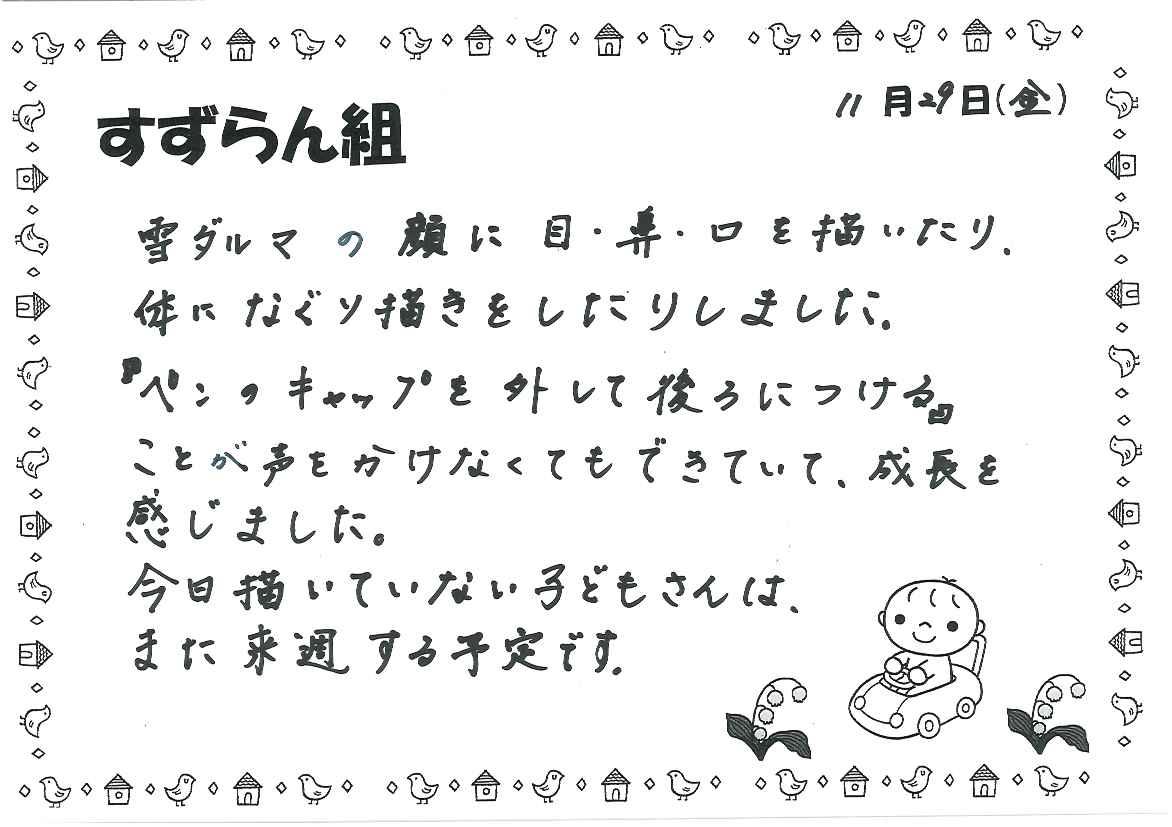 すずらん組
11月29日(金)
雪ダルマの顔に目・鼻・口を描いたり、
体になぐり描きをしたりしました。
『ペンのキャップを外して後ろにつける』
ことが声をかけなくてもできていて、成長を
感じました。
今日描いていない子どもさんは、
また来週する予定です。